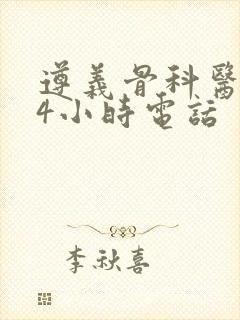 遵義骨科醫
4小時電話
李秋喜